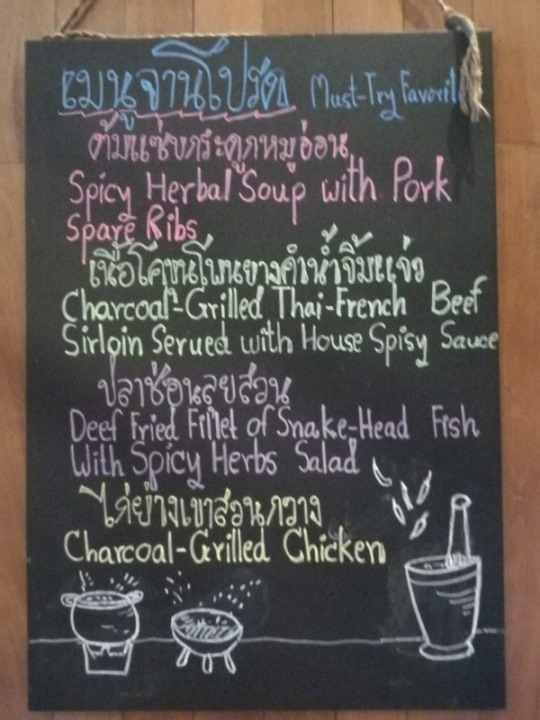 เมนูจานโปรด Must-Try Favorite
ต้มแซ่บกระดูกหมูอ่อน
Spicy Herbal Soup with Pork
Spare Ribs
เนื้อโคขุนโพนยางคำน้ำจิ้มแจ่ว
Charcoal-Grilled Thai-French Beef
Sirloin Serued with House Spisy Sauce
ปลาช่อนลุยสวน
Deef Fried Fillet of Snake-Head Fish
With Spicy Herbs Salad
ไก่ย่างเขาสวนกวาง
Charcoal-Grilled Chicken